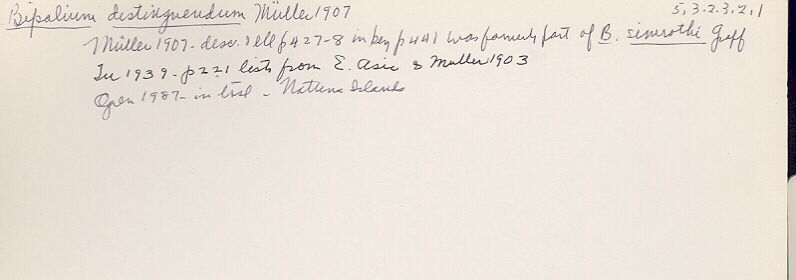 Bipalium distinguendum Müller 1907 5,3.2.3.2,1
Müller 1907- descr & ill p 427-8 in key p 441 was formerly part of B. simrothi Graff
Tu 1939- p221 lists from E. Asia & Muller 1903
Ogren 1987- in list - Nattuna Islands